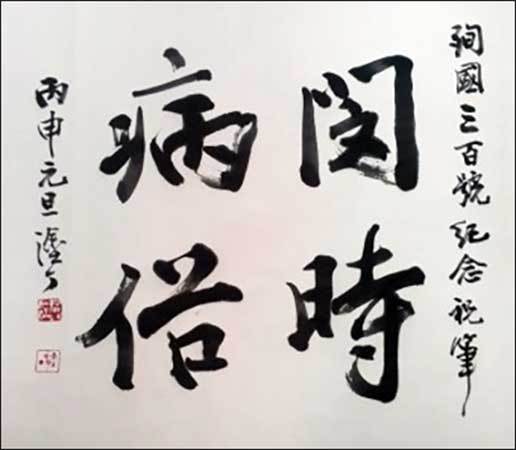 殉國三百號紀念祝筆
閔時
病俗
丙申元旦